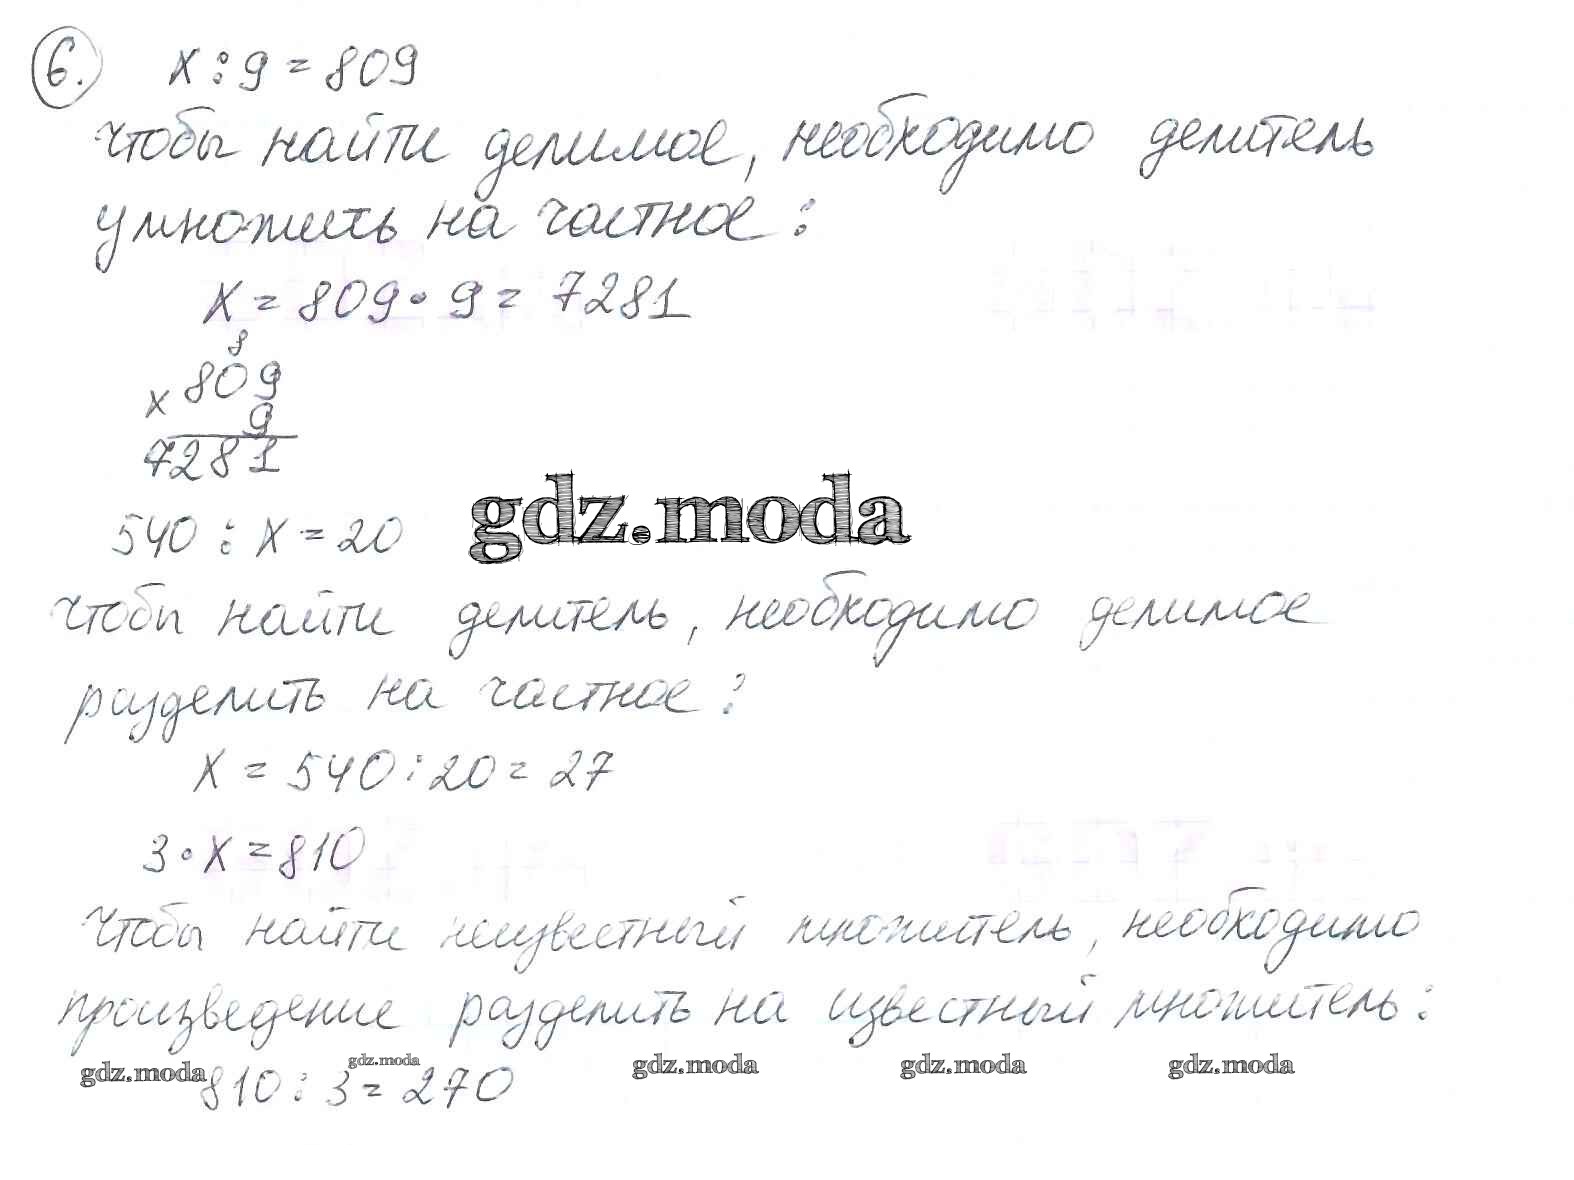 6. x : 9 = 809
Чтобы найти делимое, необходимо делитель
умножить на частное:
x = 809 · 9 = 7281
8
x 809
9
7281
gdz.moda
540 : x = 20
Чтобы найти делитель, необходимо делимое
разделить на частное:
x = 540 : 20 = 27
3 · x = 810
Чтобы найти неизвестный множитель, необходимо
произведение разделить на известный множитель:
gdz.moda gdz.moda gdz.moda gdz.moda gdz.moda
810 : 3 = 270